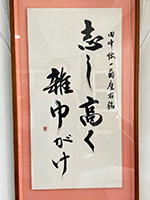 田中依一翁座右銘
志し高く
雑巾がけ